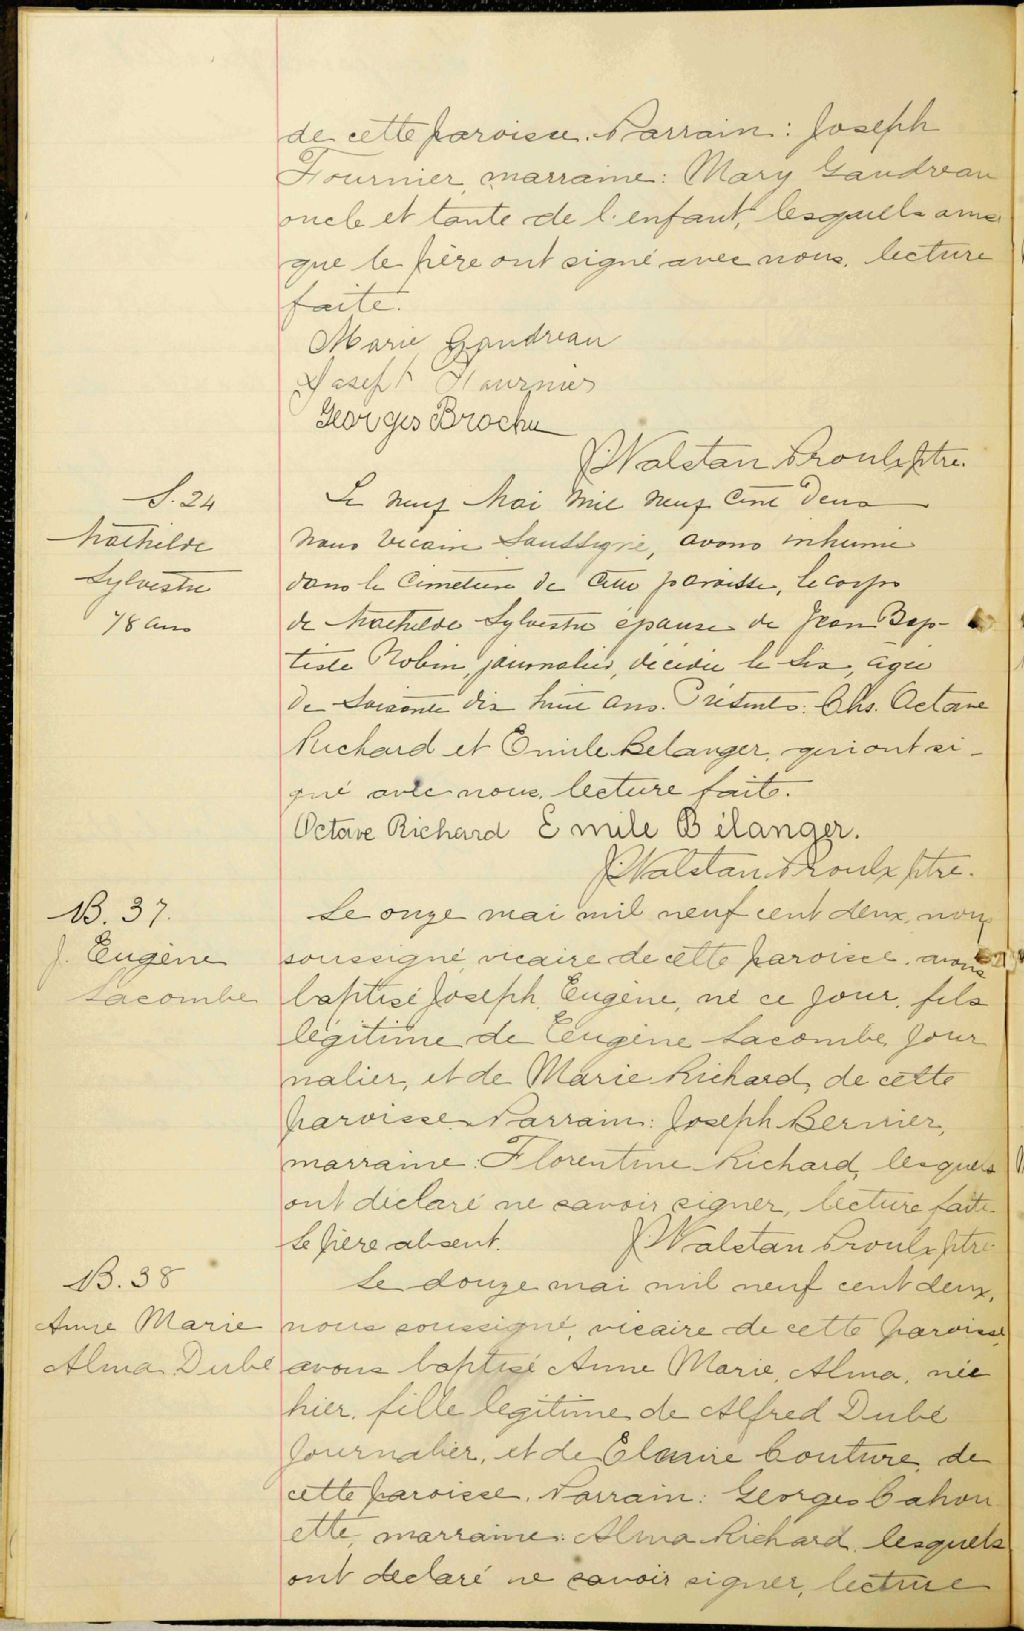 de cette paroisse. Parrain: Joseph
Fournier, marraine: Mary Gaudreau
oncle et tante de l'enfant, lesquels ainsi
que le père ont signé avec nous. lecture
faite.
Marie Gaudreau
Joseph Fournier
Georges Brochu
J. Walstan Proulx ptre.
S. 24
Mathilde
Sylvestre
78 ans
Le neuf Mai mil neuf cent deux
nous vicaire soussigné, avons inhumé
dans le cimetière de cette paroisse, le corps
de Mathilde Sylvestre épouse de Jean Bap-
tiste Robin, journalier, décédée le six, âgée
de soixante dix huit ans. Présents: Chs. Octave
Richard et Emile Belanger, qui ont si-
gné avec nous, lecture faite.
Octave Richard Emile Bélanger.
J. Walstan Proulx ptre.
B. 37.
J. Eugène
Lacombe
Le onze mai mil neuf cent deux, nous
soussigné, vicaire de cette paroisse, avons
baptisé Joseph, Eugène, né ce jour, fils
légitime de Eugène Lacombe, jour
nalier, et de Marie Richard, de cette
paroisse. Parrain: Joseph Bernier,
marraine: Florentine Richard, lesquels
ont déclaré ne savoir signer, lecture faite.
Le père absent. J. Walstan Proulx ptre.
B. 38
Anne Marie
Alma Dubé
Le douze mai mil neuf cent deux,
nous soussigné, vicaire de cette paroisse,
avons baptisé Anne Marie, Alma, née
hier, fille legitime de Alfred Dubé
journalier, et de Elmire Couture, de
cette paroisse. Parrain: Georges Cahou
ette, marraine: Alma Richard, lesquels
ont declaré ne savoir signer, lecture